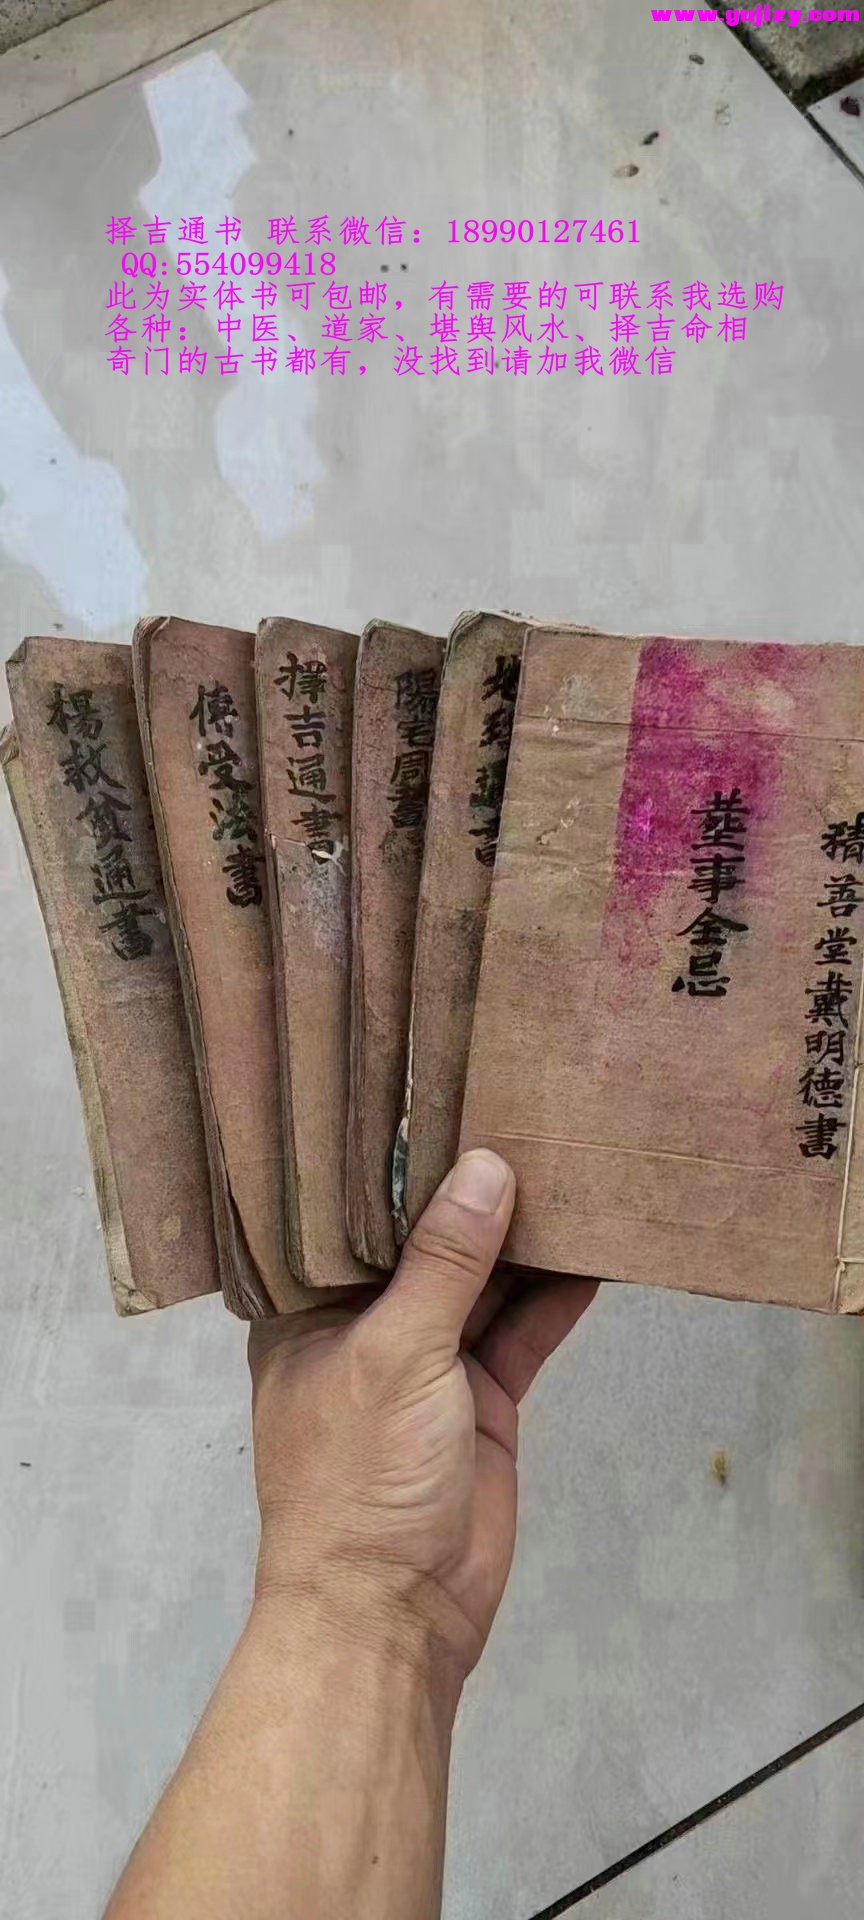 www.gujizy.com
择吉通书 联系微信：18990127461
QQ:554099418
此为实体书可包邮，有需要的可联系我选购
各种：中医、道家、堪舆风水、择吉命相
奇门的古书都有，没找到请加我微信
楊救貧通書
傳受法書
擇吉通書
陽宅周書
地理通書
葬事全忌
積善堂戴明德書